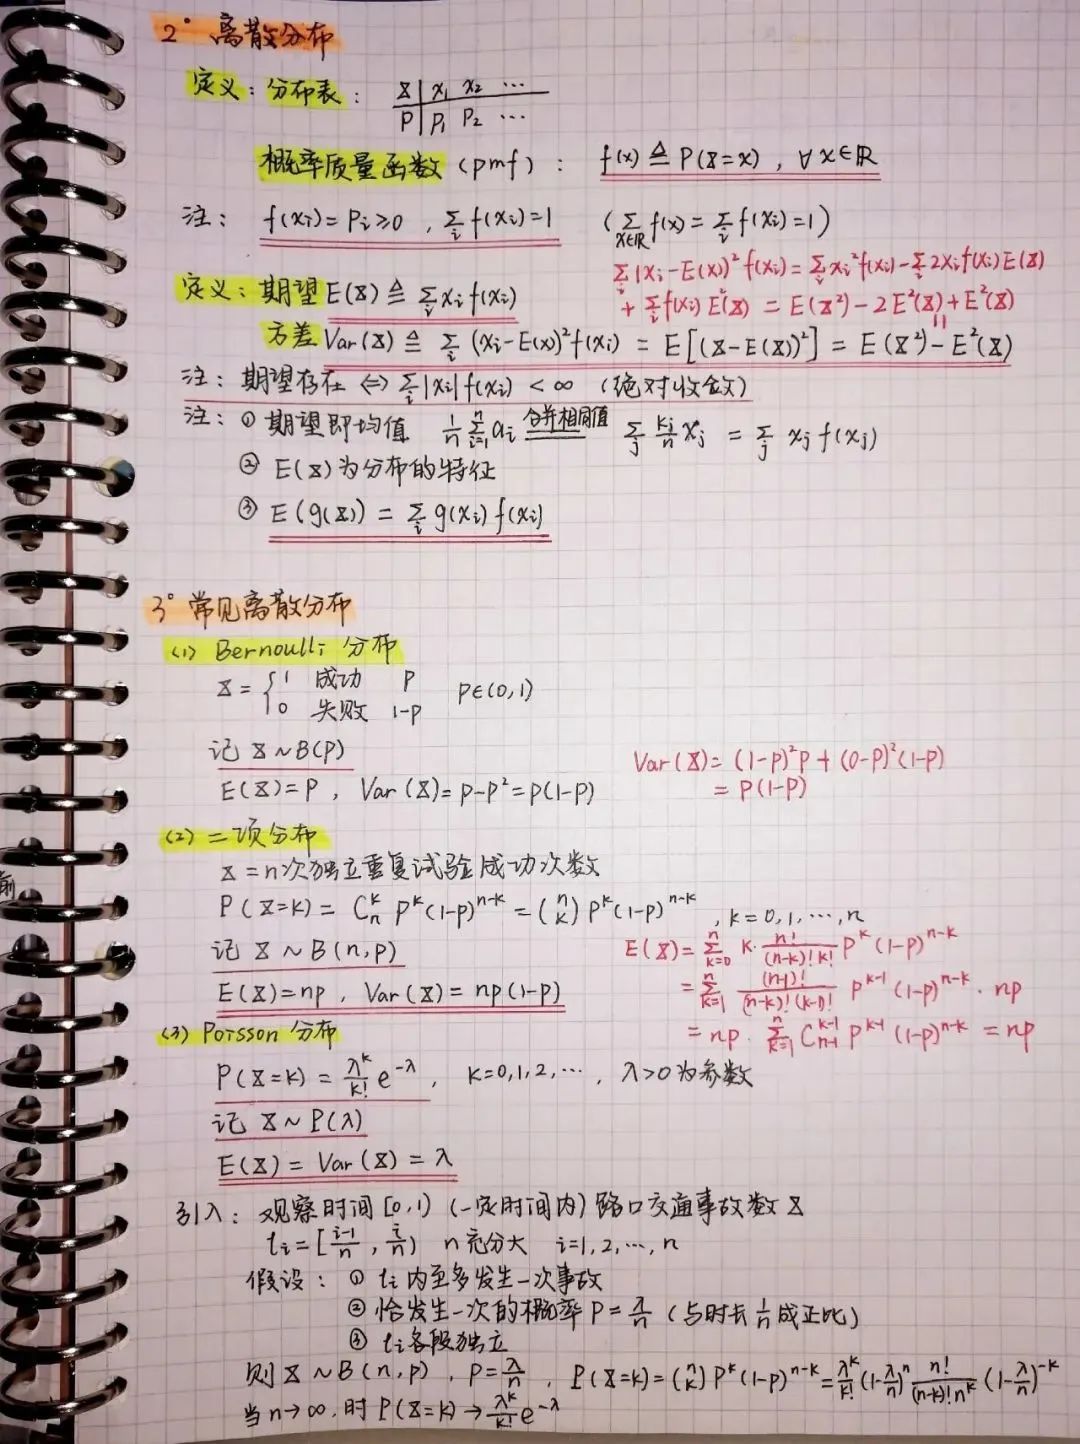 2° 离散分布
定义：分布表： X | x₁ x₂ ⋯
P | p₁ p₂ ⋯
概率质量函数 (pmf)： f(x) ≜ P(X=x) , ∀x∈ℝ
注： f(xᵢ)=pᵢ≥0 , ∑ᵢ f(xᵢ)=1 (∑_{x∈ℝ} f(x) = ∑ᵢ f(xᵢ)=1)
∑ᵢ(xᵢ-E(X))² f(xᵢ) = ∑ᵢ xᵢ² f(xᵢ) - ∑ᵢ 2xᵢ f(xᵢ) E(X)
+ ∑ᵢ f(xᵢ) E²(X) = E(X²) - 2E²(X) + E²(X)
定义：期望 E(X) ≜ ∑ᵢ xᵢ f(xᵢ)
方差 Var(X) ≜ ∑ᵢ (xᵢ-E(X))² f(xᵢ) = E[(X-E(X))²] = E(X²)-E²(X)
注：期望存在 ⇔ ∑ᵢ |xᵢ| f(xᵢ) < ∞ (绝对收敛)
注：① 期望即均值 1/n ∑_{i=1}^{n} aᵢ 合并相同值 ∑ⱼ kⱼ/n xⱼ = ∑ⱼ xⱼ f(xⱼ)
② E(X)为分布的特征
③ E(g(X)) = ∑ᵢ g(xᵢ) f(xᵢ)
3° 常见离散分布
(1) Bernoulli 分布
X = { 1 成功 p
0 失败 1-p p∈(0,1)
记 X~B(p)
E(X)=p , Var(X)=p-p²=p(1-p)
Var(X)= (1-p)²p + (0-p)²(1-p)
= p(1-p)
(2) 二项分布
X = n次独立重复试验成功次数
P(X=k) = Cₙᵏ pᵏ(1-p)ⁿ⁻ᵏ = (n k) pᵏ(1-p)ⁿ⁻ᵏ , k=0,1,⋯,n
记 X~B(n,p)
E(X)=np , Var(X)=np(1-p)
E(X)= ∑_{k=0}^{n} k·n!/((n-k)!k!) pᵏ(1-p)ⁿ⁻ᵏ
= ∑_{k=1}^{n} (n-1)!/((n-k)!(k-1)!) pᵏ⁻¹(1-p)ⁿ⁻ᵏ · np
= np · ∑_{k=1}^{n} C_{n-1}^{k-1} pᵏ⁻¹(1-p)ⁿ⁻ᵏ = np
(3) Poisson 分布
P(X=k) = λᵏ/k! e^{-λ} , k=0,1,2,⋯ , λ>0为参数
记 X~P(λ)
E(X) = Var(X) = λ
引入：观察时间[0,1) (一定时间内) 路口交通事故数X
tᵢ=[(i-1)/n , i/n) n充分大 i=1,2,⋯,n
假设：① tᵢ内至多发生一次事故
② 恰发生一次的概率 p = λ/n (与时长 1/n 成正比)
③ tᵢ各段独立
则 X~B(n,p) , p=λ/n , P(X=k)=(n k) pᵏ(1-p)ⁿ⁻ᵏ = λᵏ/k! (1-λ/n)ⁿ n!/((n-k)!nᵏ) (1-λ/n)⁻ᵏ
当n→∞,时 P(X=k)→ λᵏ/k! e^{-λ}